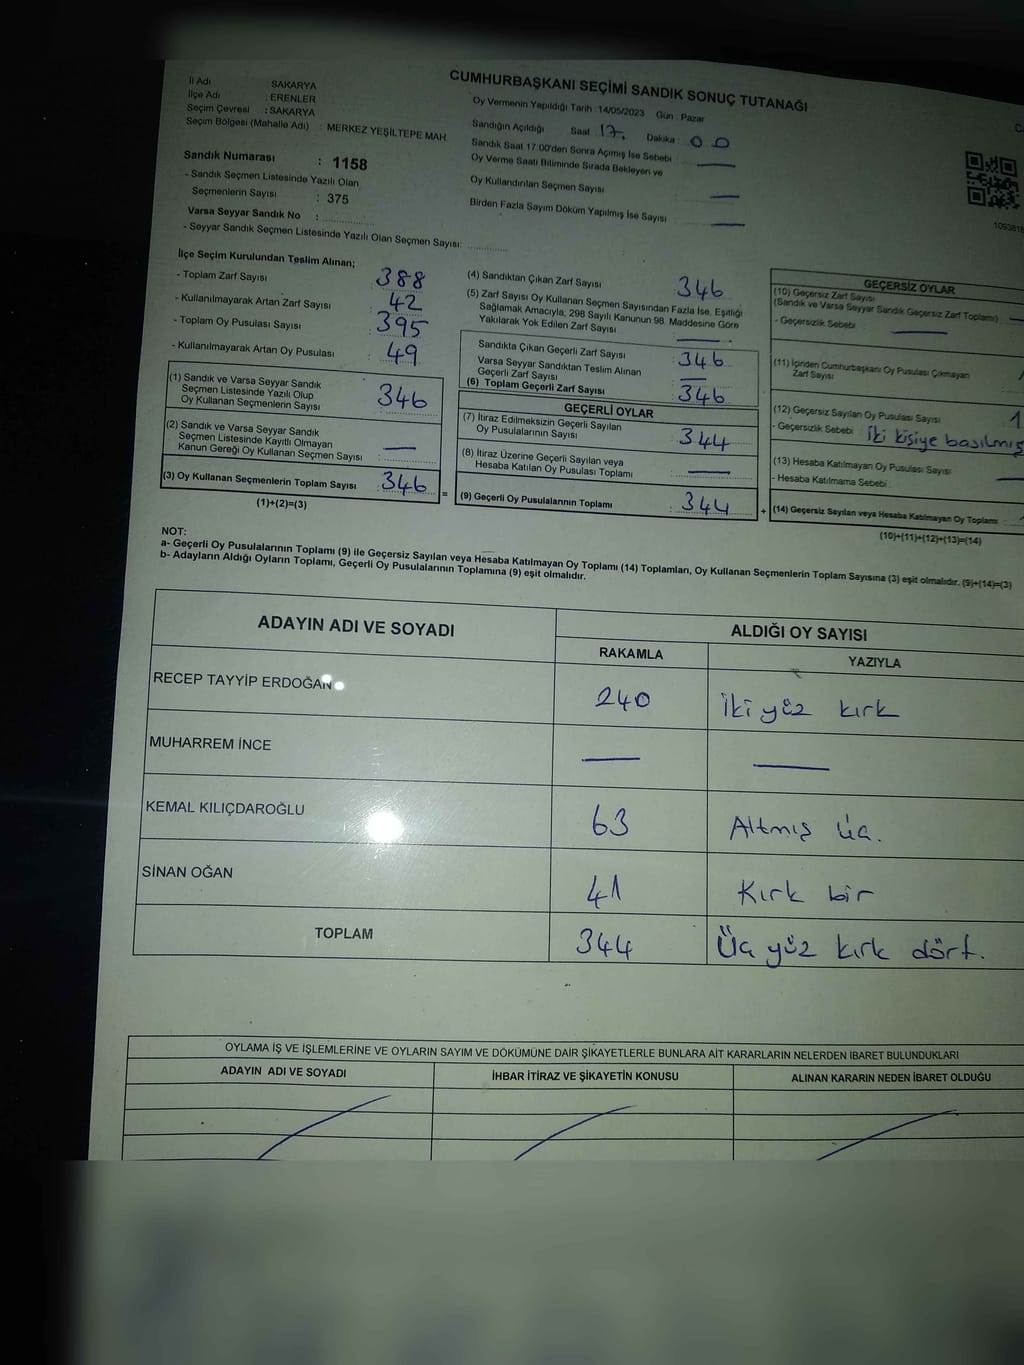 CUMHURBAŞKANI SEÇİMİ SANDIK SONUÇ TUTANAĞI
İl Adı : SAKARYA
İlçe Adı : ERENLER
Seçim Çevresi : SAKARYA
Seçim Bölgesi (Mahalle Adı) : MERKEZ YEŞİLTEPE MAH.
Sandık Numarası : 1158
- Sandık Seçmen Listesinde Yazılı Olan
Seçmenlerin Sayısı : 375
Varsa Seyyar Sandık No :
- Seyyar Sandık Seçmen Listesinde Yazılı Olan Seçmen Sayısı:
Oy Vermenin Yapıldığı Tarih : 14/05/2023 Gün : Pazar
Sandığın Açıldığı Saat 17. Dakika 00
Sandık Saat 17:00'den Sonra Açımış İse Sebebi —
Oy Verme Saati Bitiminde Sırada Bekleyen ve
Oy Kullandırılan Seçmen Sayısı —
Birden Fazla Sayım Döküm Yapılmış İse Sayısı —
109381
İlçe Seçim Kurulundan Teslim Alınan;
- Toplam Zarf Sayısı : 388
- Kullanılmayarak Artan Zarf Sayısı : 42
- Toplam Oy Pusulası Sayısı : 395
- Kullanılmayarak Artan Oy Pusulası : 49
(1) Sandık ve Varsa Seyyar Sandık
Seçmen Listesinde Yazılı Olup
Oy Kullanan Seçmenlerin Sayısı : 346
(2) Sandık ve Varsa Seyyar Sandık
Seçmen Listesinde Kayıtlı Olmayan
Kanun Gereği Oy Kullanan Seçmen Sayısı : —
(3) Oy Kullanan Seçmenlerin Toplam Sayısı : 346
(1)+(2)=(3)
(4) Sandıktan Çıkan Zarf Sayısı 346
(5) Zarf Sayısı Oy Kullanan Seçmen Sayısından Fazla İse, Eşitliği
Sağlamak Amacıyla; 298 Sayılı Kanunun 98. Maddesine Göre
Yakılarak Yok Edilen Zarf Sayısı —
Sandıkta Çıkan Geçerli Zarf Sayısı 346
Varsa Seyyar Sandıktan Teslim Alınan
Geçerli Zarf Sayısı —
(6) Toplam Geçerli Zarf Sayısı 346
=
GEÇERLİ OYLAR
(7) İtiraz Edilmeksizin Geçerli Sayılan
Oy Pusulalarının Sayısı : 344
(8) İtiraz Üzerine Geçerli Sayılan veya
Hesaba Katılan Oy Pusulası Toplamı : —
(9) Geçerli Oy Pusulalarının Toplamı : 344
+
GEÇERSİZ OYLAR
(10) Geçersiz Zarf Sayısı
(Sandık ve Varsa Seyyar Sandık Geçersiz Zarf Toplamı) —
- Geçersizlik Sebebi : —
(11) İçinden Cumhurbaşkanı Oy Pusulası Çıkmayan
Zarf Sayısı
(12) Geçersiz Sayılan Oy Pusulası Sayısı 1
- Geçersizlik Sebebi : İki kişiye basılmış
(13) Hesaba Katılmayan Oy Pusulası Sayısı —
- Hesaba Katılmama Sebebi :
(14) Geçersiz Sayılan veya Hesaba Katılmayan Oy Toplamı
(10)+(11)+(12)+(13)=(14)
NOT:
a- Geçerli Oy Pusulalarının Toplamı (9) ile Geçersiz Sayılan veya Hesaba Katılmayan Oy Toplamı (14) Toplamları, Oy Kullanan Seçmenlerin Toplam Sayısına (3) eşit olmalıdır. (9)+(14)=(3)
b- Adayların Aldığı Oyların Toplamı, Geçerli Oy Pusulalarının Toplamına (9) eşit olmalıdır.
ADAYIN ADI VE SOYADI ALDIĞI OY SAYISI
RAKAMLA YAZIYLA
RECEP TAYYİP ERDOĞAN 240 İki yüz kırk
MUHARREM İNCE — —
KEMAL KILIÇDAROĞLU 63 Altmış üç.
SİNAN OĞAN 41 Kırk bir
TOPLAM 344 Üç yüz kırk dört.
OYLAMA İŞ VE İŞLEMLERİNE VE OYLARIN SAYIM VE DÖKÜMÜNE DAİR ŞİKAYETLERLE BUNLARA AİT KARARLARIN NELERDEN İBARET BULUNDUKLARI
ADAYIN ADI VE SOYADI İHBAR İTİRAZ VE ŞİKAYETİN KONUSU ALINAN KARARIN NEDEN İBARET OLDUĞU